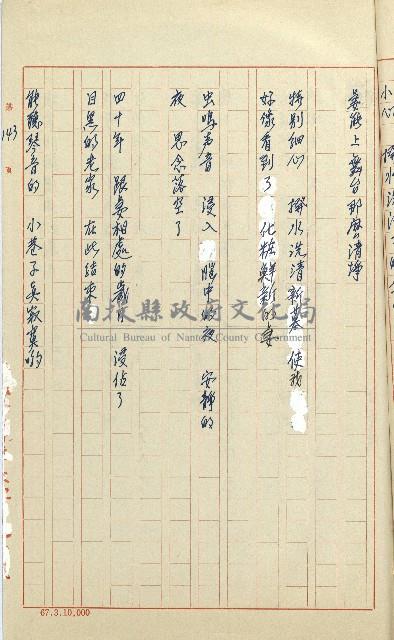 小心 撥水洗清
妻能上舞台那麼清淨
特別細心 撥水洗清新墓 使我
好像看到了 化粧鮮新的妻
虫鳴声音 浸入 腦中的夜 安静的
夜 思念落空了
四十年 跟妻相處的歲月 浸佔了
日黑的老家 在此結束
能聽琴音的 小巷子吳寂寞的
第 143 頁
南投縣政府文化局
Cultural Bureau of Nantou County Government
67.3.10,000